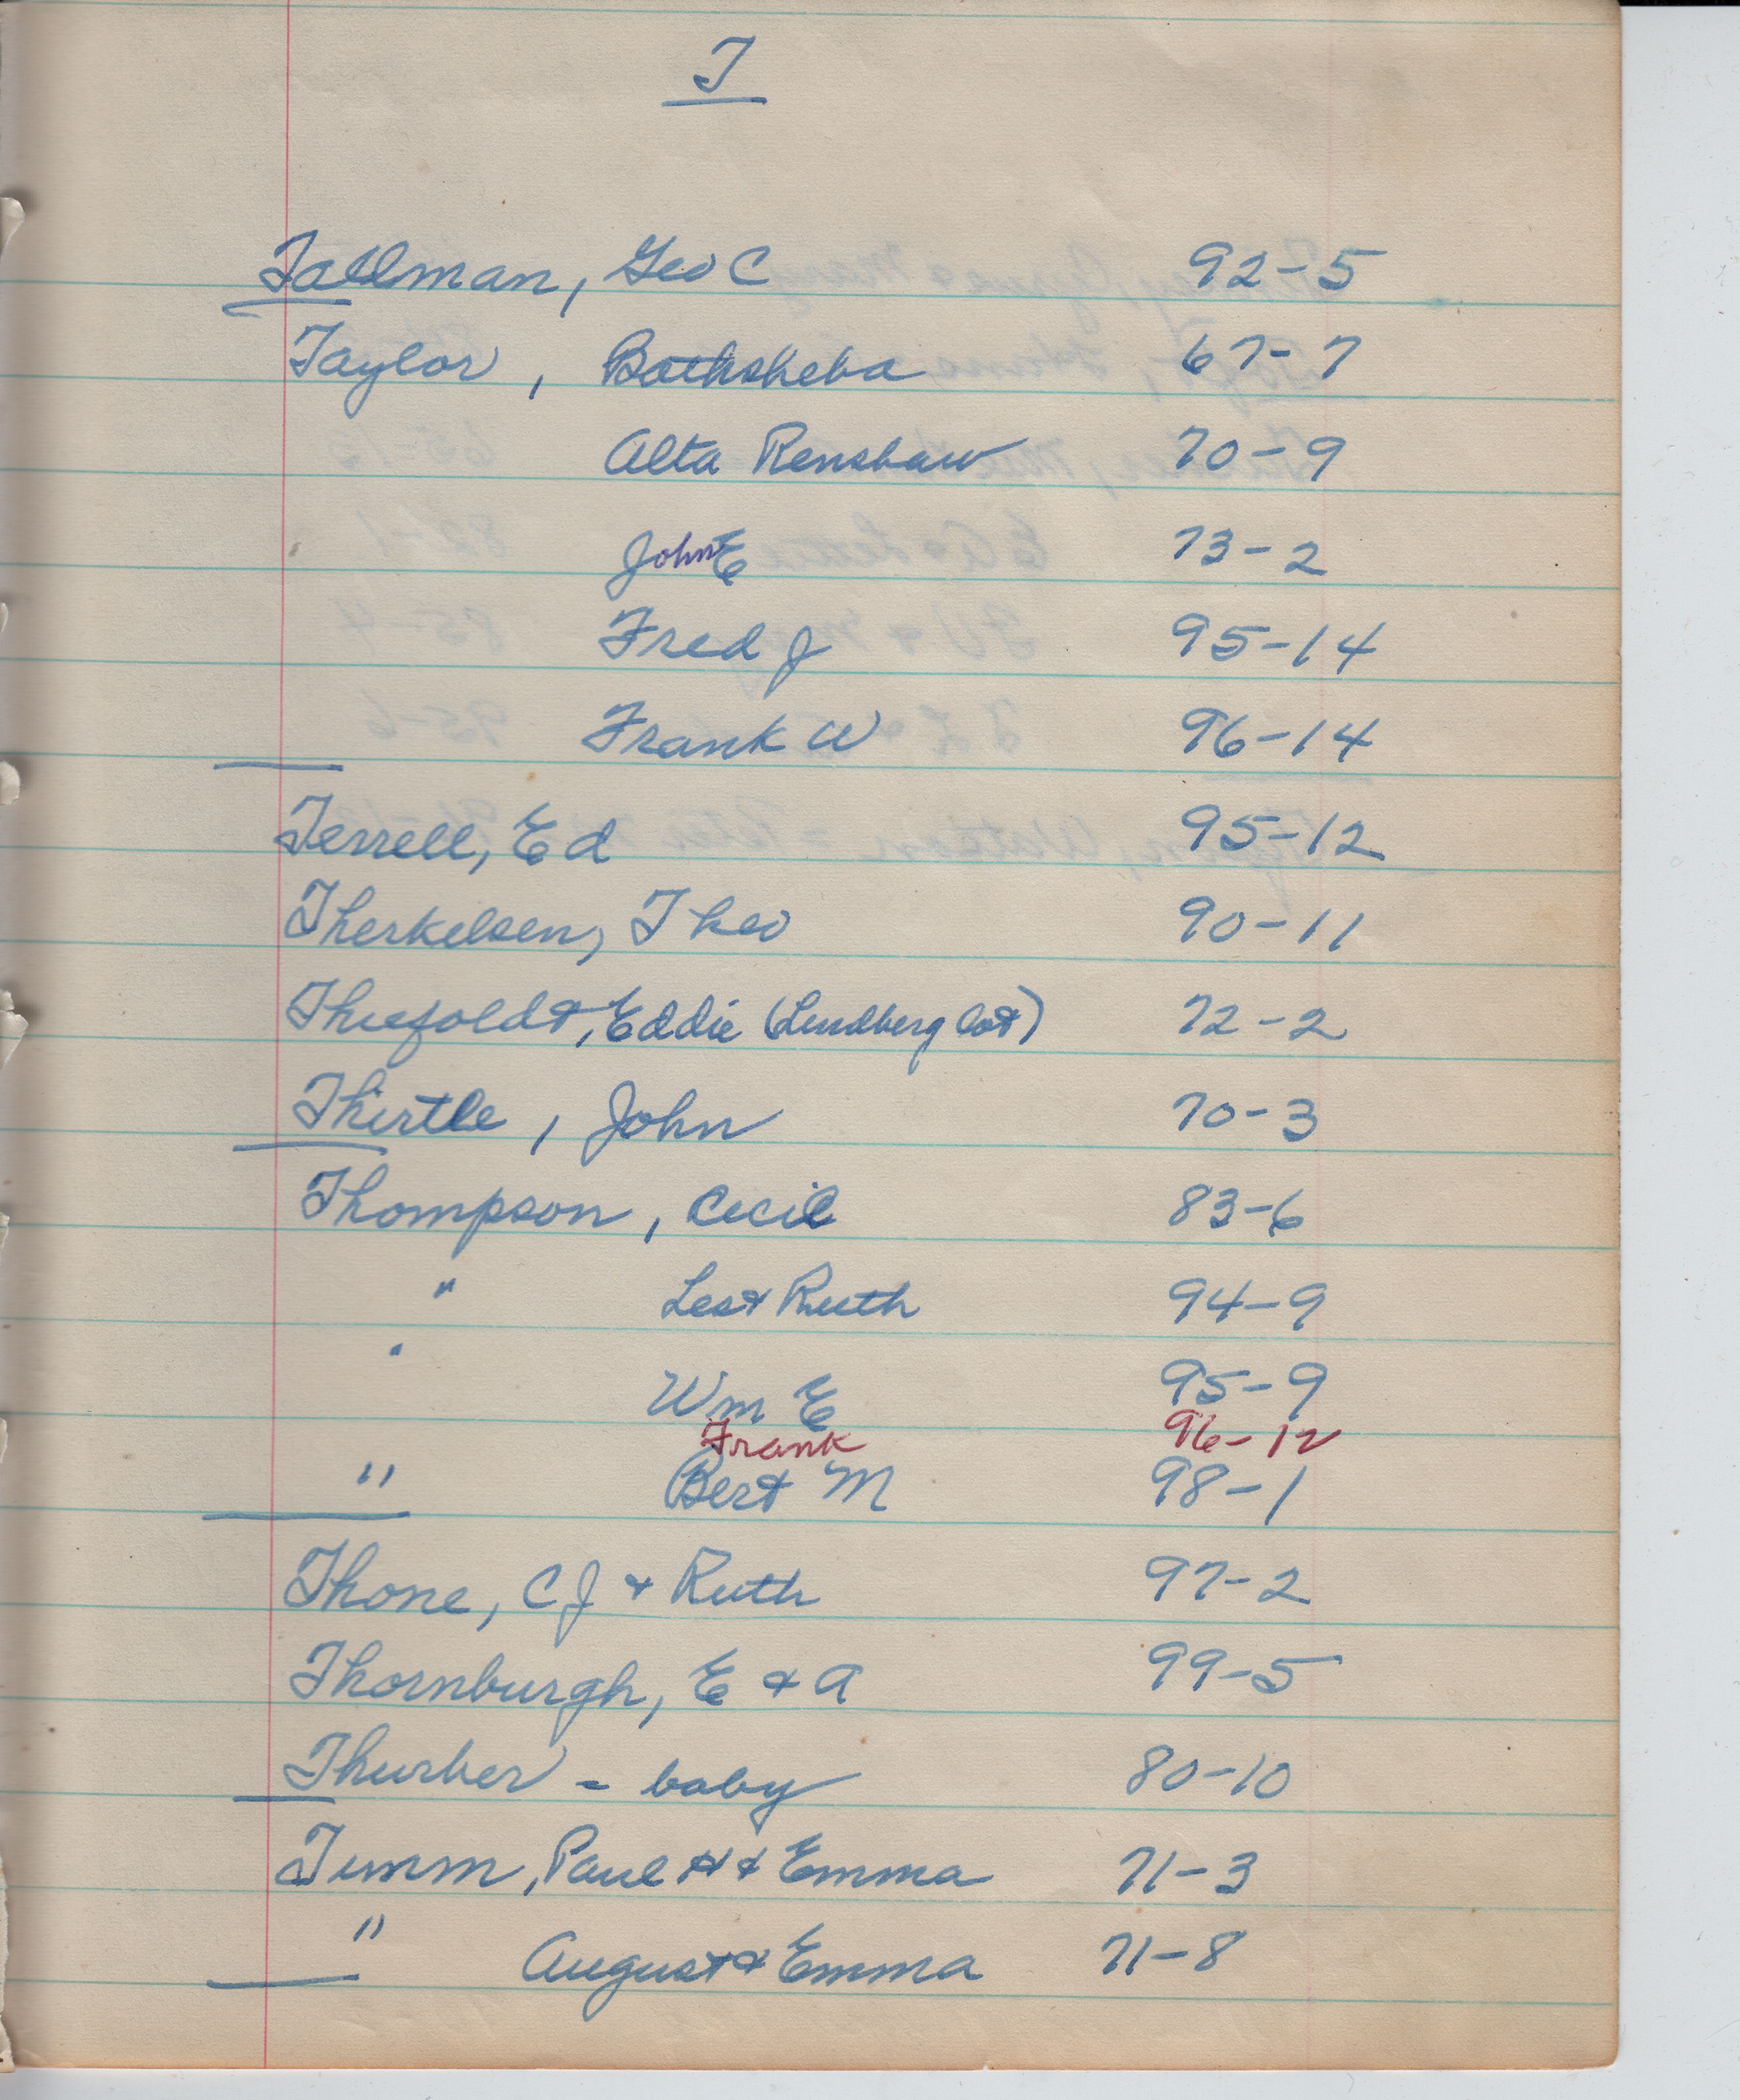 T
Tallman, Geo C 92-5
Taylor, Bathsheba 67-7
Alta Renshaw 70-9
John E 73-2
Fred J 95-14
Frank W 96-14
Terrell, Ed 95-12
Therkelsen, Theo 90-11
Eddie (Lundberg lot) 72-2
Thirtle, John 70-3
Thompson, Cecil 83-6
" Les & Ruth 94-9
" Wm E 95-9
Frank 96-12
" Bert M 98-1
Thone, C J & Ruth 97-2
Thornburgh, E & A 99-5
Thurber - baby 80-10
Timm, Paul H & Emma 71-3
" August & Emma 71-8